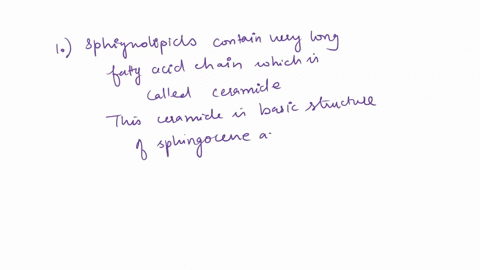 1.) Sphignolipids contain very long
fatty acid chain which is
called ceramide
This ceramide is basic structure
of sphingocene a